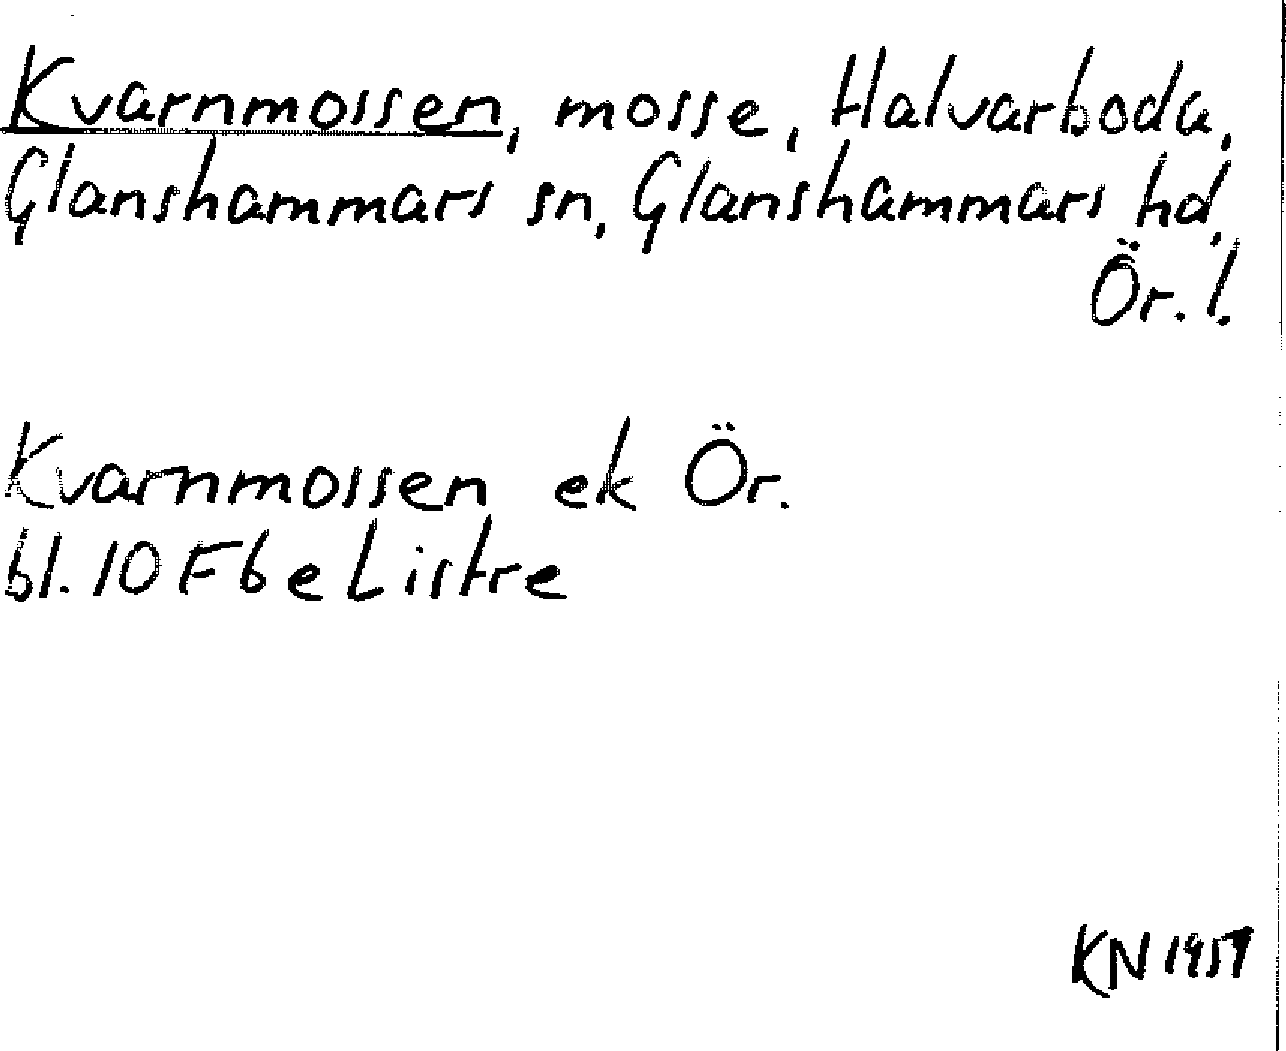 Kvarnmossen, mosse, Halvarboda,
Glanshammars sn, Glanshammars hd,
Ör. l.
Kvarnmossen ek Ör.
bl. 10 F 6 e Listre
KN 1957